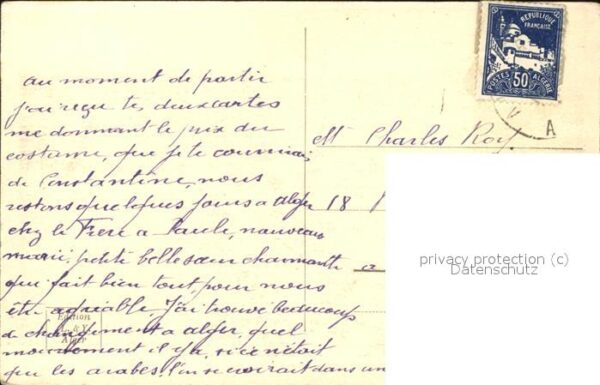 au moment de partir
j'ai reçu tes deux cartes
me donnant le prix du
costume, que je
de Constantine, nous
restons quelques jours a alger
chez le Frere a Paule, nouveau
marié, petite belle sœur charmante
qui fait bien tout pour nous
être agréable. J'ai trouvé beaucoup
de changement a alger, quel
mouvement il y a, si ce n'était
que les arabes, l'on se croirait dans un
REPUBLIQUE
FRANÇAISE
POSTES 50c ALGERIE
V A
Mr Charles Roy
18
a
privacy protection (c)
Datenschutz
Edition
Alger